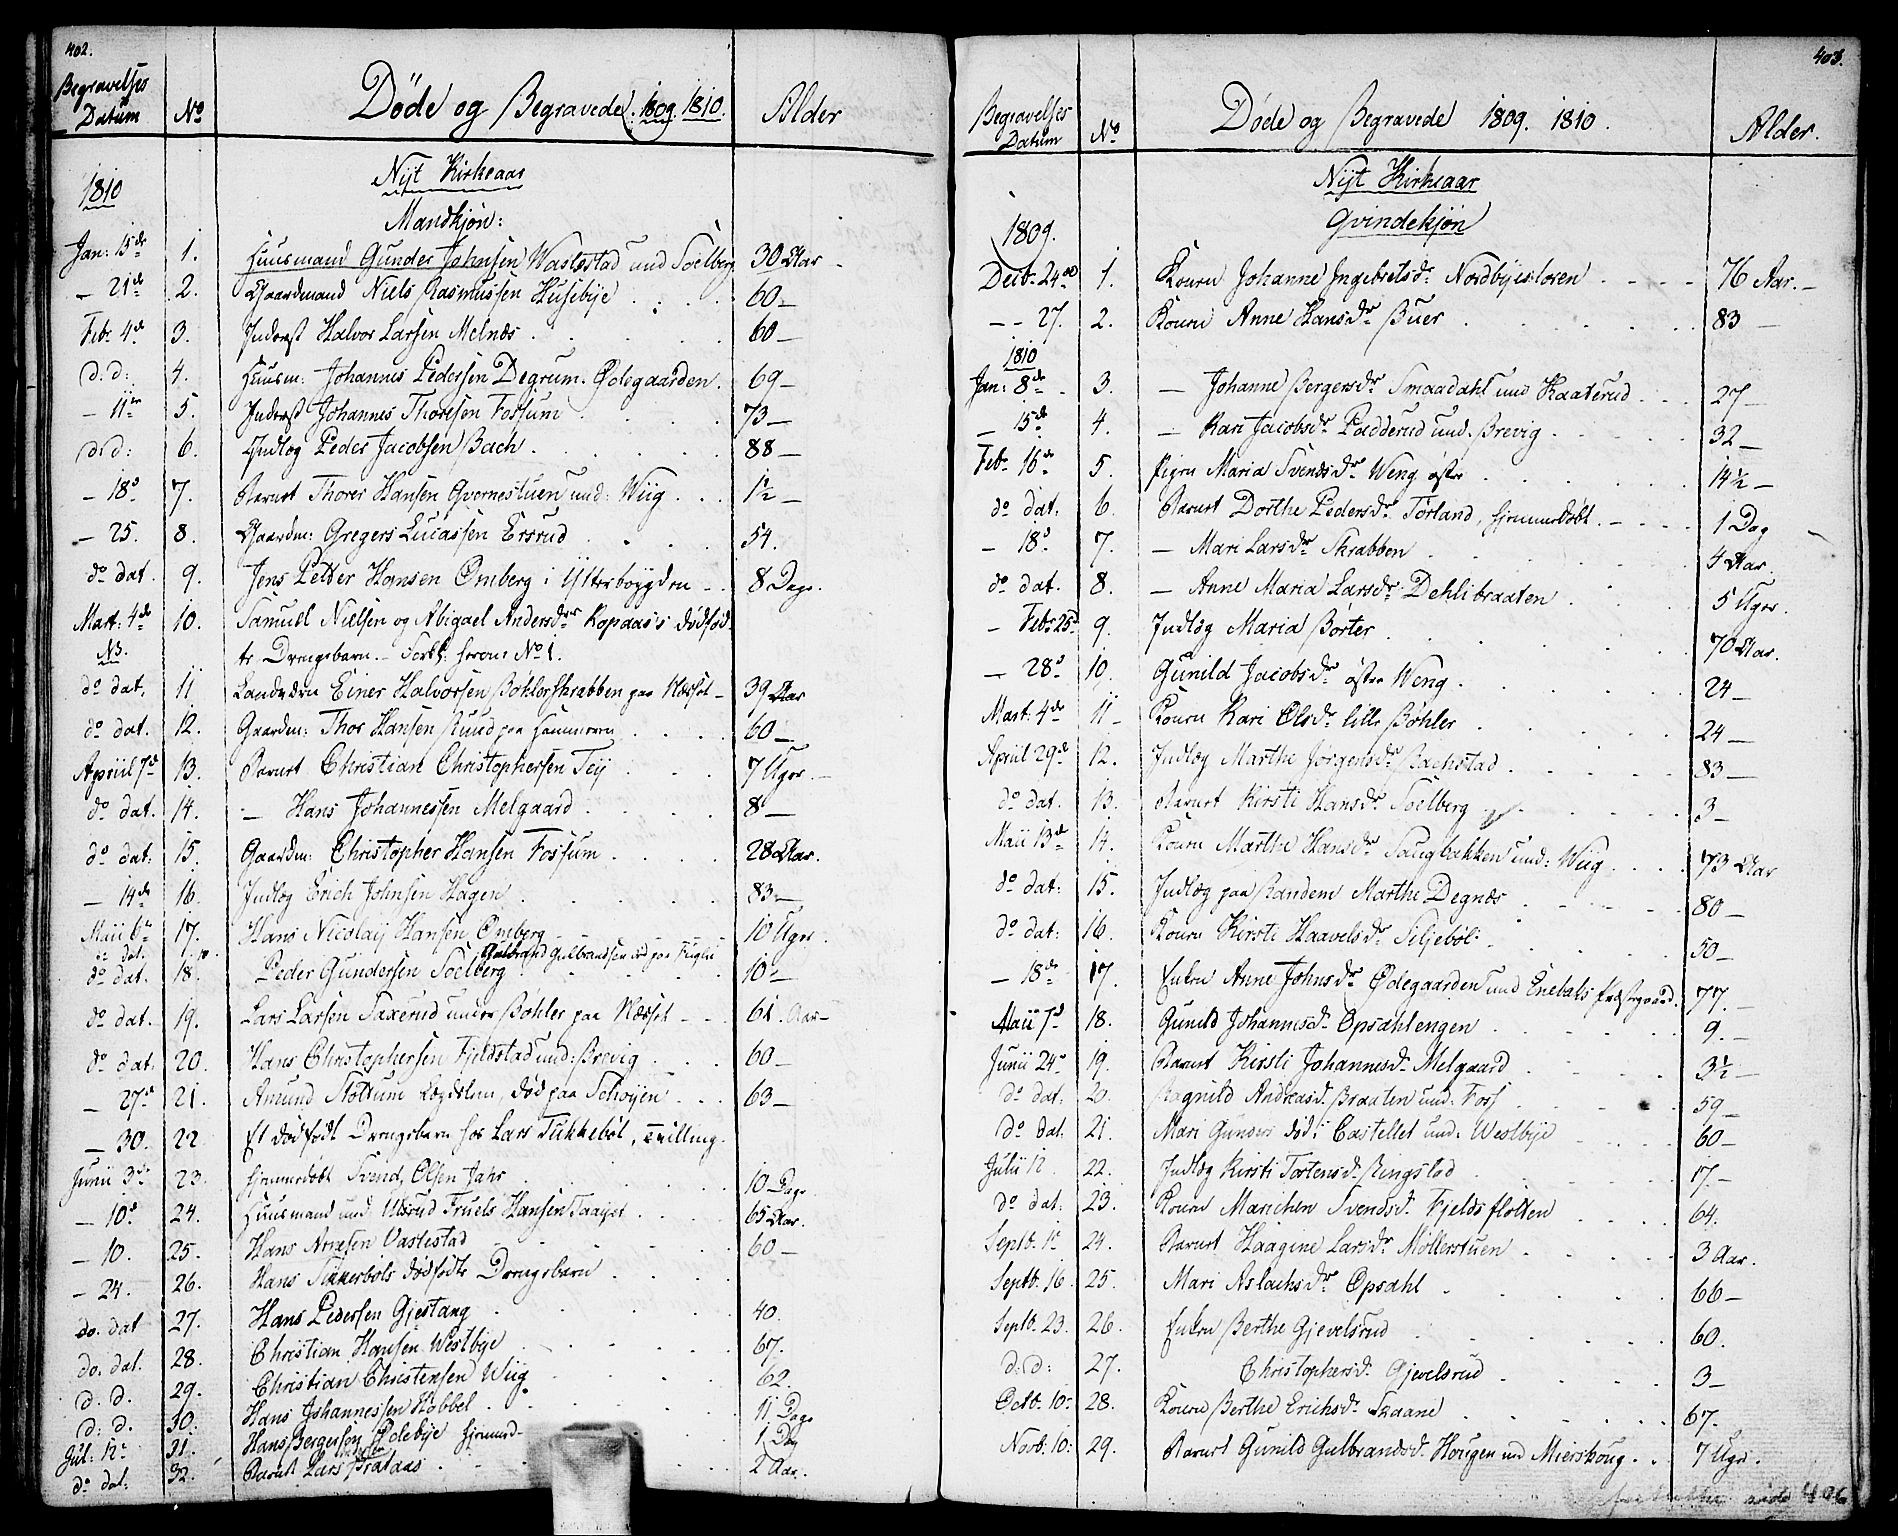 402.
Begravelses Datum No Døde og Begravede 1809. 1810. Alder
1810 Nÿt Kirkeaar
Mandkjøn:
Jan: 15de 1. Huusmand Gunder Johnsen Wastestad und Soelberg 30 Aar
— 21de 2. Gaardmand Niels Rasmussen Husebÿe 60 —
Febr 4de 3. Inderst Halvor Larsen Melnæs 60 —
d. d: 4. Huusm: Johannes Pedersen Degrum. Ødegaarden. 69 —
— 11te 5. Inderst Johannes Thoresen Fossum 73 —
d: d: 6. Indlæg Peder Jacobsen Bach 88 —
— 18d 7. Barnet Thorer Hansen Qvernestuen und: Wiig 1½ —
— 25. 8. Gaardm: Gregers Lucassen Ersrud 54.
do dat. 9. Jens Petter Hansen Omberg i Ytterbøygden 8 Dage.
Mart: 4de 10. Samuel Nielsen og Abigael Andersdr Kopaas's dødfød-
NB. te Drengebarn. No 1.
do dat. 11 Einer Halvorsen Bøhlerskrabben paa Næsset 39 Aar
do dat. 12. Gaardm: Thor Hansen Ruud paa Hammeren 60 —
Apriil 7d 13. Barnet Christian Christophersen Teÿ 7 Uger
do dat. 14. — Hans Johannessen Melgaard 8 —
do dat: 15. Gaardm: Christopher Hansen Fossum 28 Aar.
— 14de 16. Indlæg Erich Johnsen Hagen 83 —
Maii 6te 17. Hans Nicolaÿ Hansen Omberg 10 Uger.
do dat. Gulbrand Gulbrandsen
do dat. 18. Peder Gundersen Soelberg 10 —
do dat. 19. Lars Larsen Taxerud under Bøhler paa Næsset 61. Aar —
do dat. 20. Hans Christophersen Fjeldstad und: Brevig 60 —
— 27d 21. Amund Stottum Lægdslem, død paa Schøÿen 63 —
— 30. 22. Et dødfødt Drengebarn hos Lars Tukkebøl, Tvilling.
Junii 3de 23. hjemmedøbt Svend Olsen Jahr 10 Dage
— 10d 24. Huusmand und Ullsrud Truels Hansen 65 Aar.
— 10. 25. Hans Vastestad 60 —
— 24. 26. Hans Tukkerbøls dødfødte Drengebarn
do. dat 27. Hans Pedersen Gjestang 40.
do. dat. 28. Christian Hansen Westbÿe 67.
d. d. 29. Christian Christensen Wiig 62.
d: d. 30. Hans Johannessen Høbbel 11 Dage
Jul: 12t 31. Hans Bergersen Ødebÿe hjemmed- 1 Dag
do dat: 32. Barnet Lars Brataas 2 Aar.
403.
Begravelses Datum No Døde og Begravede 1809. 1810. Alder.
Nÿt Kirkeaar
Qvindekjøn
1809.
Decb. 24de 1. Konen Johanne Ingebretsdr Nordbÿesloren 76 Aar. —
— — 27. 2. Konen Anne Hansdr Buer 83 —
1810
Jan: 8de 3. — Johanne Bergersdr Smaadahl und Kaaterud 27
— 15de 4. — Kari Jacobsdr Padderud und. Brevig 32 —
Feb. 16de 5. Pigen Maria Svensdr Weng østre 14½ —
do dat. 6. Barnet Dorthe Pedersdr Tørland, hjemmedøbt. 1 Dag
— 18d 7. — Mari Larsdr Skrabben 4 Aar.
do dat. 8. — Anne Maria Larsdr Dehlibraaten 5 Uger.
— Febr 25d 9. Indlæg Maria Børter 70 Aar.
— 28d 10. Gunild Jacobsdr østre Weng 24 —
Mart. 4de 11 — Konen Kari Olsdr lille Bøhler 24 —
April 29d 12. Indlæg Marthe Jørgensdr Bachstad 83 —
do dat. 13. Barnet Kirsti Hansdr Soelberg 3 —
Maii 13de 14. Konen Marthe Hansdr Saugbakken und: Wiig 73 Aar
do dat: 15. Indlæg paa Randem Marthe Degnæs 80 —
do dat: 16. Konen Kirsti Haavelsdr Siljebøl 50 —
— 18de 17. Enken Anne Johnsdr Ødegaarden und Enebaks Præstegaard. 77. —
Maii 7d 18. Gunild Johannisdr Opsahlengen 9. —
Junii 24d 19. Barnet Kirsti Johannisdr Melgaard 3½ —
do dat: 20. Ragnild Andreasdr Braaten und: Foss 59 —
Do dat: 21. Mari Gunders død i Castellet und: Westbÿe 60 —
Julii 12 22. Indlæg Kirsti Torstensdr Ringstad 17. —
do dat: 23. Konen Marichen Svendsdr Fjeldsflotten 64.
Septb. 1e 24. Barnet Haagine Larsdr Möllerstuen 3 Aar.
Septb. 16. 25. Mari Aslachsdr Opsahl 66 —
Septb. 23. 26. Enken Berthe Gjevelsrud 60.
d: d: 27. Christophersdr Gjevelsrud 3 —
Octb. 10: 28. Konen Berthe Erichsdr Skaane 67.
Novb. 10: 29. Barnet Gunild Gulbrandsdr Hougen und Mierskoug 7 Uger.
fortsættes side 406